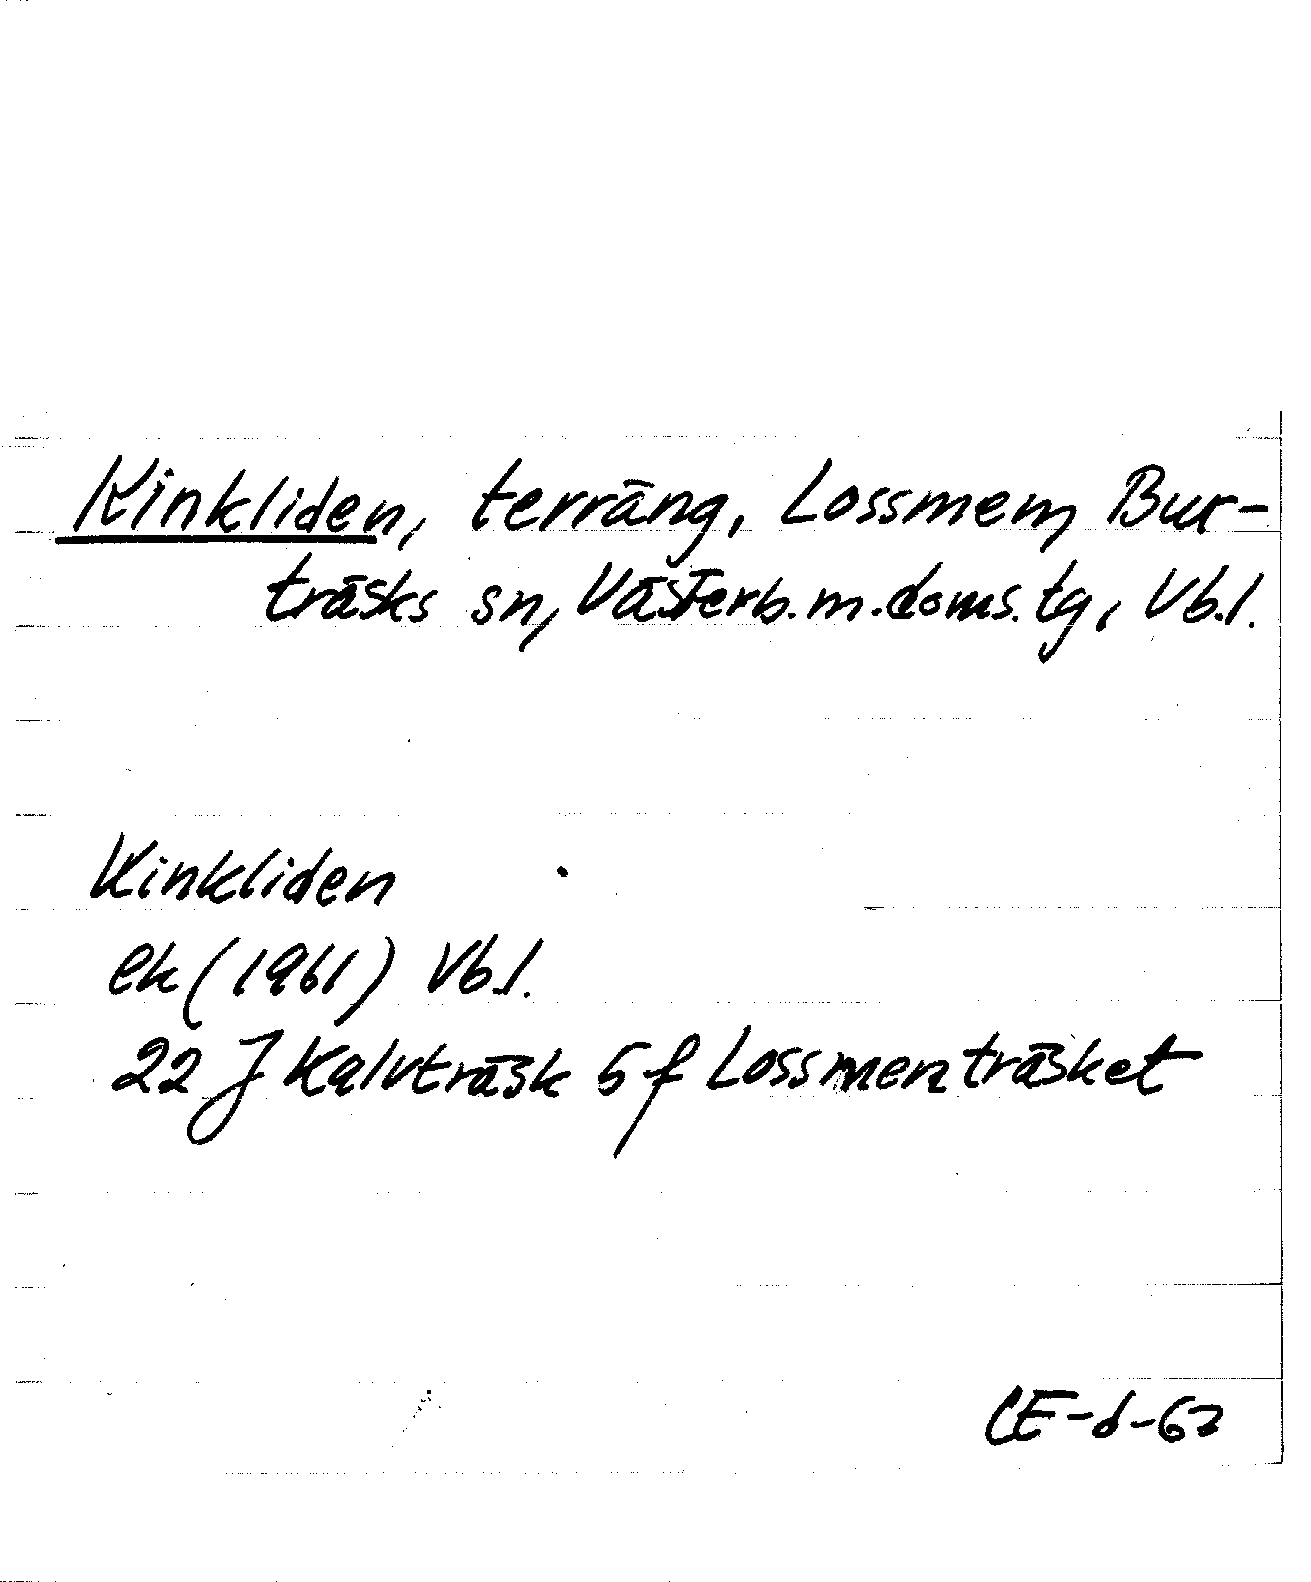 Kinkliden, terräng, Lossmen, Bur-
träsks sn, Västerb.m.doms.tg, Vb.l.
Kinkliden
ek (1961) Vb.l.
22 J Kalvträsk 5f Lossmenträsket
CE-d-62